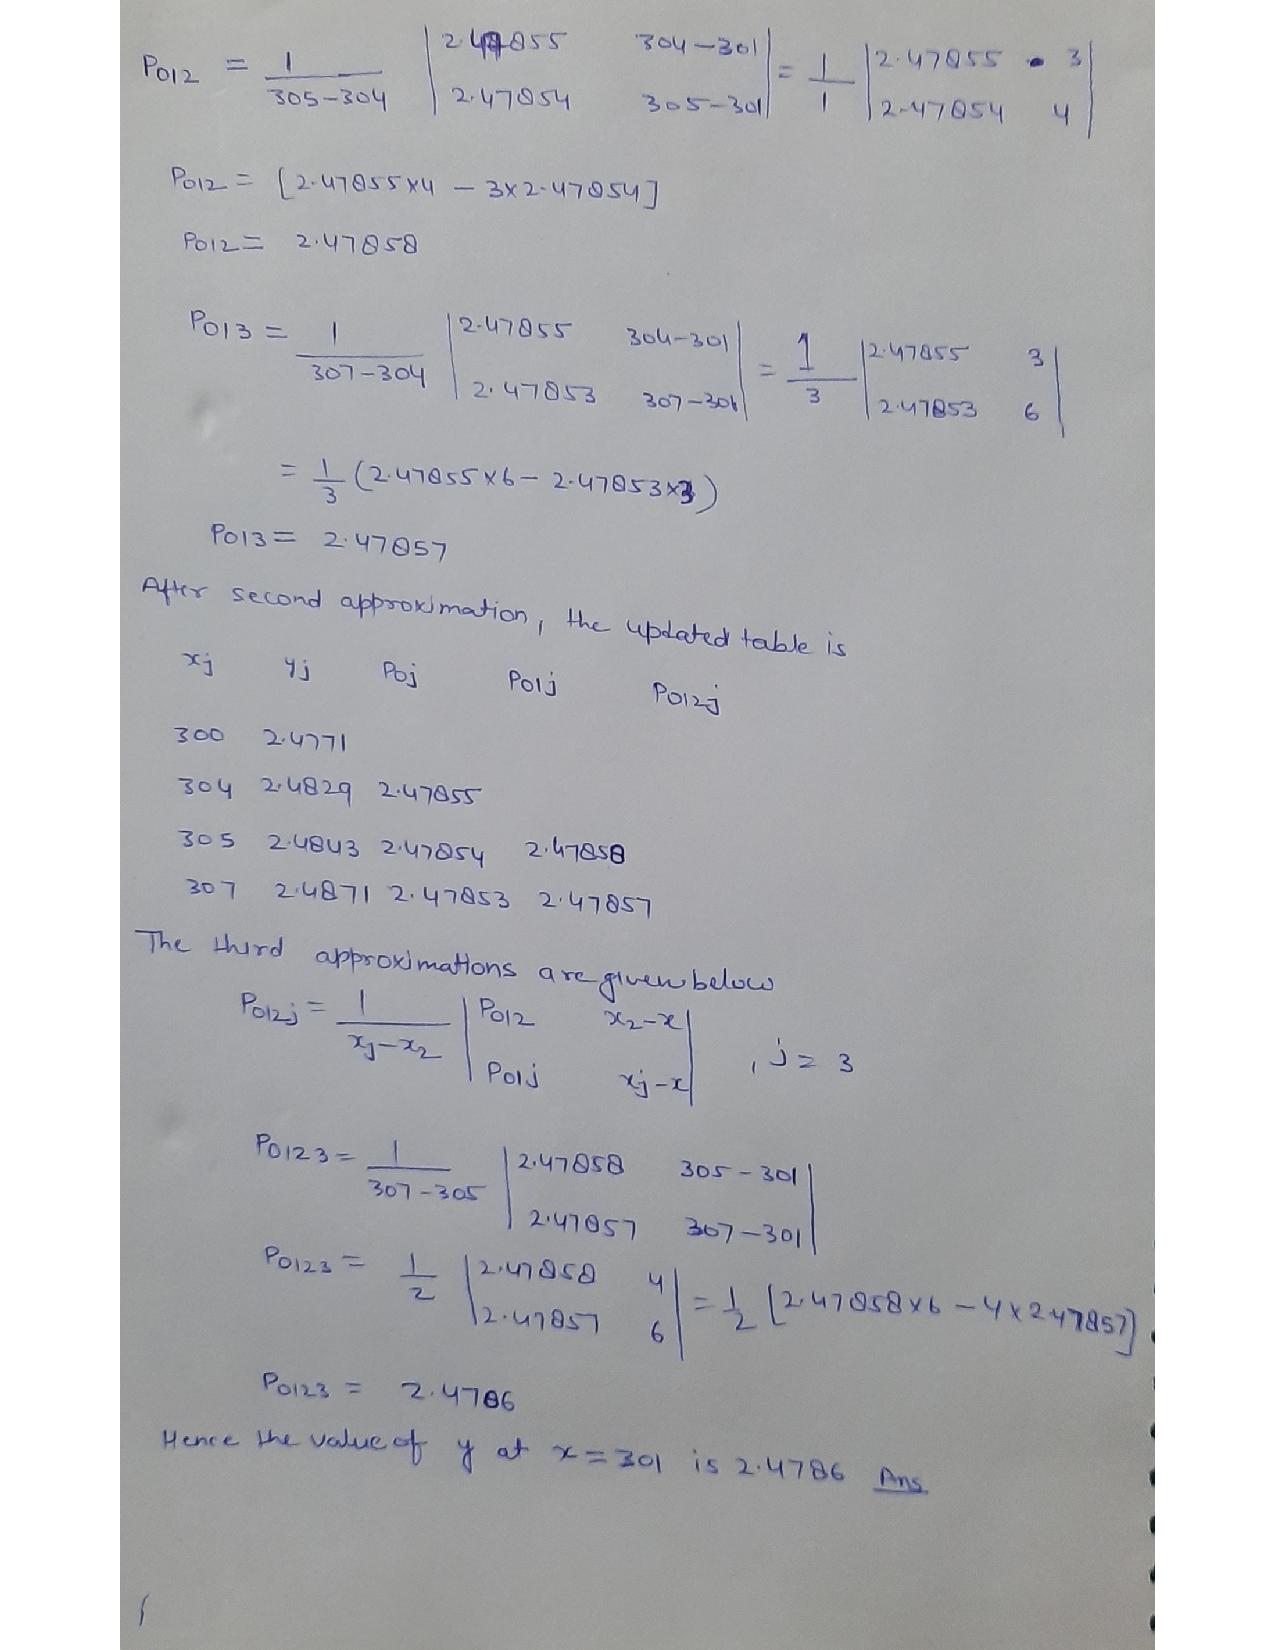 P012 = 1/(305-304) |2.47855 304-301; 2.47854 305-301| = 1/1 |2.47855 3; 2.47854 4|
P012 = [2.47855×4 - 3×2.47854]
P012 = 2.47858
P013 = 1/(307-304) |2.47855 304-301; 2.47853 307-301| = 1/3 |2.47855 3; 2.47853 6|
= 1/3 (2.47855×6 - 2.47853×3)
P013 = 2.47857
After second approximation, the updated table is
xj yj P0j P01j P012j
300 2.4771
304 2.4829 2.47855
305 2.4843 2.47854 2.47858
307 2.4871 2.47853 2.47857
The third approximations are given below
P012j = 1/(xj-x2) |P012 x2-x; P01j xj-x| , j = 3
P0123 = 1/(307-305) |2.47858 305-301; 2.47857 307-301|
P0123 = 1/2 |2.47858 4; 2.47857 6| = 1/2 [2.47858×6 - 4×2.47857]
P0123 = 2.4786
Hence the value of y at x = 301 is 2.4786 Ans